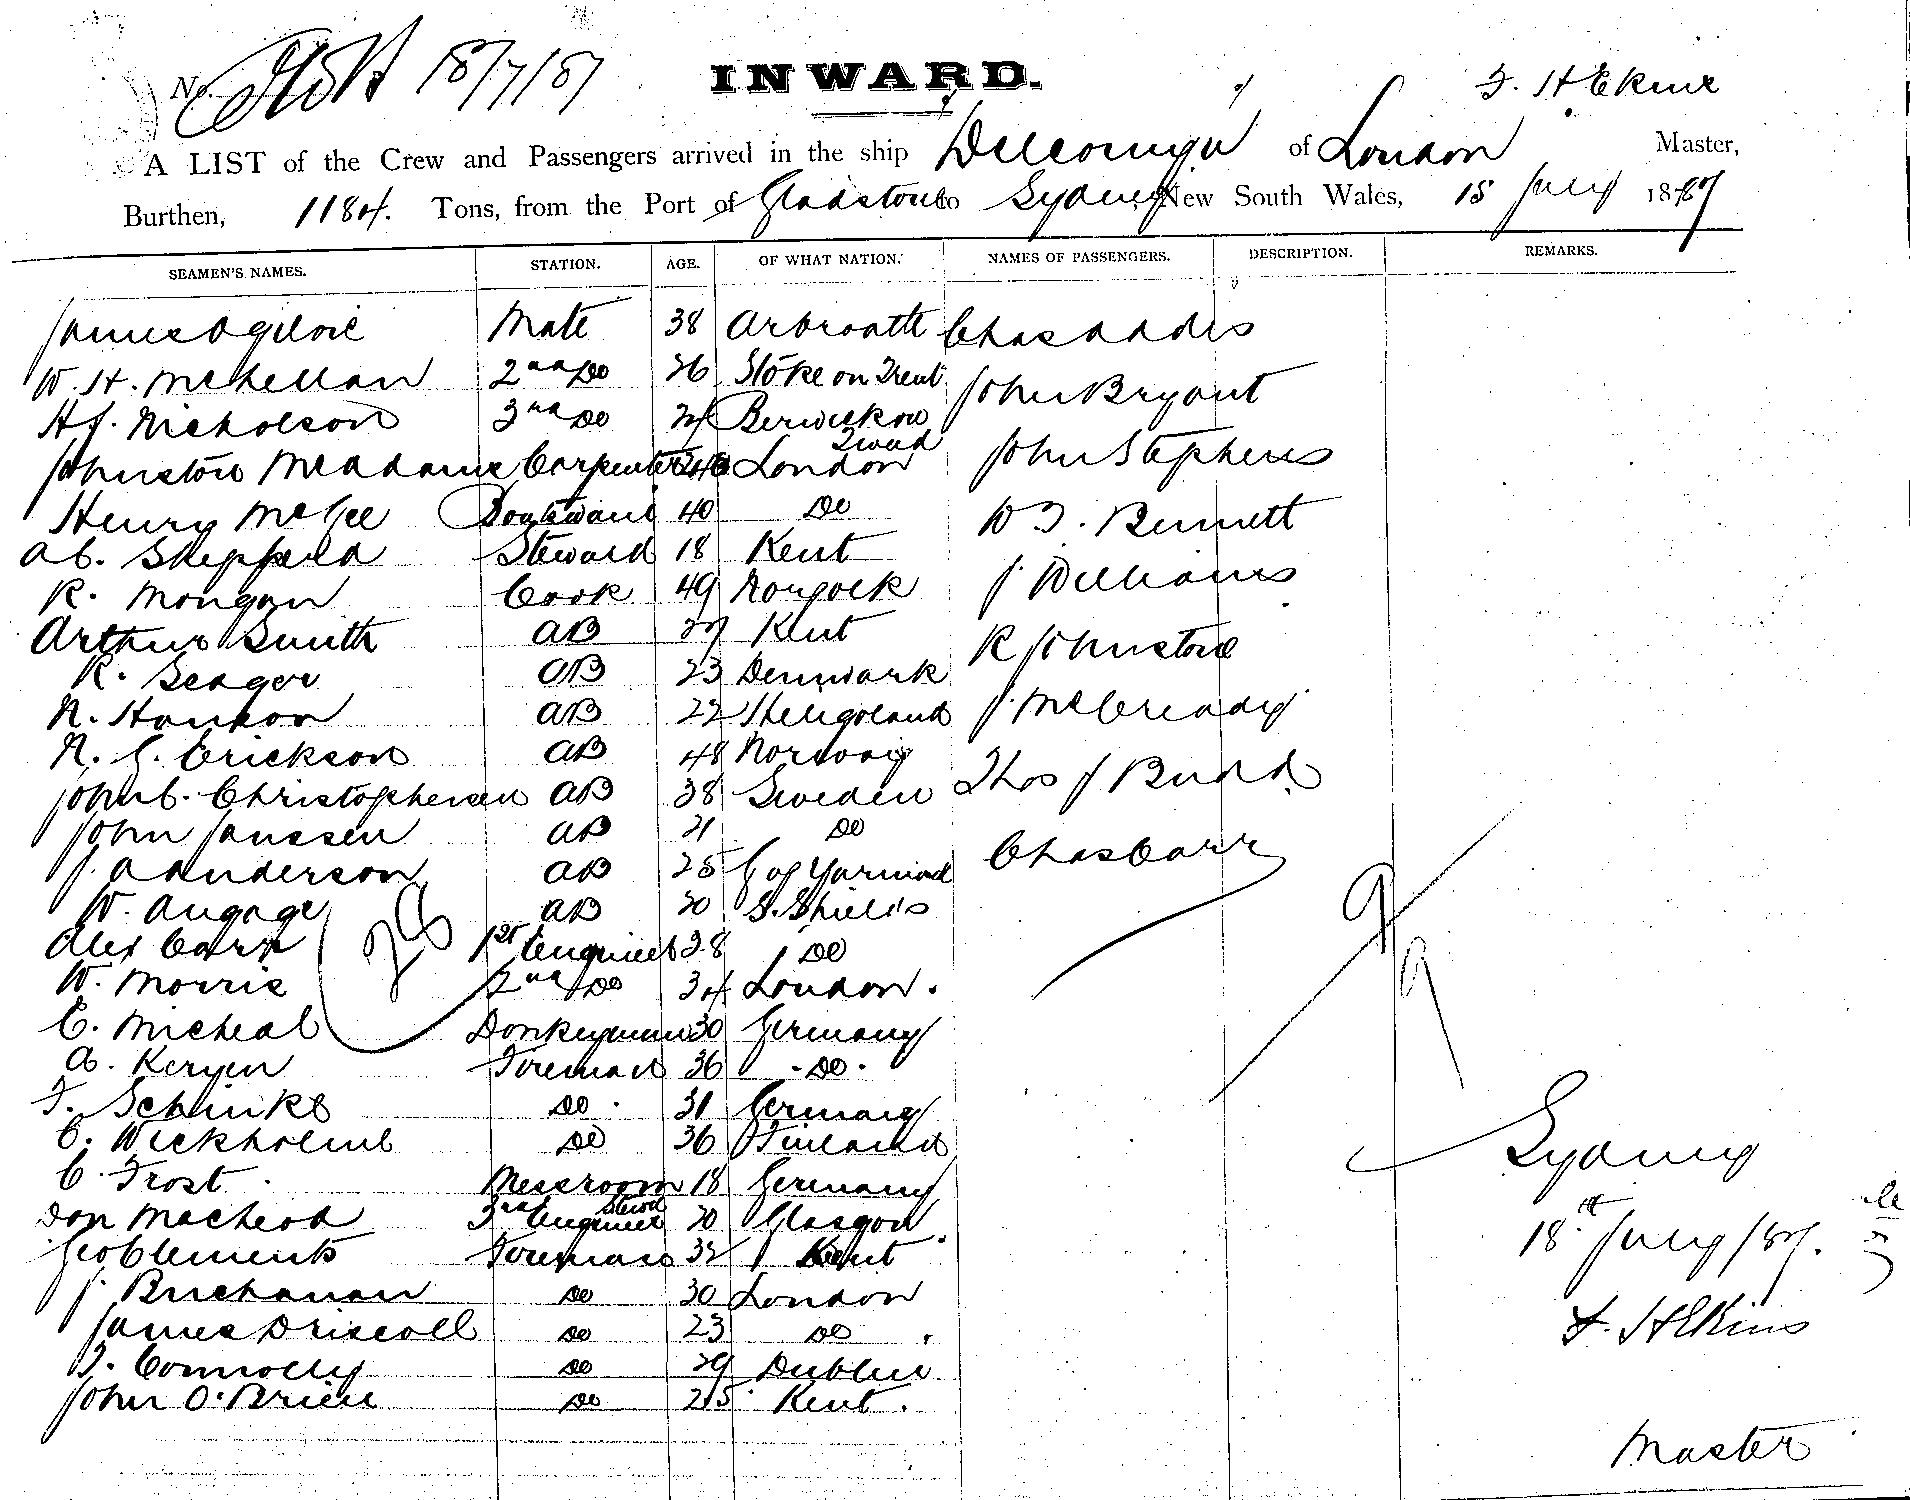 No. 18/7/87 INWARD. F. H Ekins
A LIST of the Crew and Passengers arrived in the ship Delcomyn of London Master,
Burthen, 1184. Tons, from the Port of Gladstone to Sydney, New South Wales, 15 July 1887
SEAMEN'S NAMES. STATION. AGE. OF WHAT NATION. NAMES OF PASSENGERS. DESCRIPTION. REMARKS.
James Ogilvie Mate 38 Arbroath Chas Addis
W. H. McLellan 2nd Do 26 Stoke on Trent John Bryant
H J. Nicholson 3rd Do Berwick on Tweed
Johnstone McAdam Carpenter London John Stephens
Henry McGee Boatswain 40 Do W T. Bennett
A C. Sheppard Steward 18 Kent
R. Mongan Cook 49 J Williams
Arthur Smith AB 27 Kent
R. Seager AB 23 Denmark R Johnstone
N. Hanson AB 22 Heligoland J. McCready
N. G. Erickson AB 48 Norway
John C. Christophersen AB 38 Sweden Thos J Budd
John Janssen AB 21 Do
J. A Anderson AB 25 G of Yarmouth Chas Carr
W. AB 20 S. Shields
Alex Carr 1st Engineer 28 Do
W. Morris 2nd Do 34 London.
C. Micheal Donkeyman 30 Germany
A. Fireman 36 Do.
F. Schinke Do. 31 Germany
C. Wickholme Do 36 Finland
C. Frost. Messroom Stewd 18 Germany
Don MacLeod 3rd Engineer 20 Glasgow.
Geo Clements Fireman 32 Kent
J. Buchanan Do 30 London
James Driscoll Do 23 Do.
T. Connolly Do 29 Dublin
John O'Brien Do 25 Kent.
28
9
9
Sydney
18th July /87.
F. H Ekins
Master